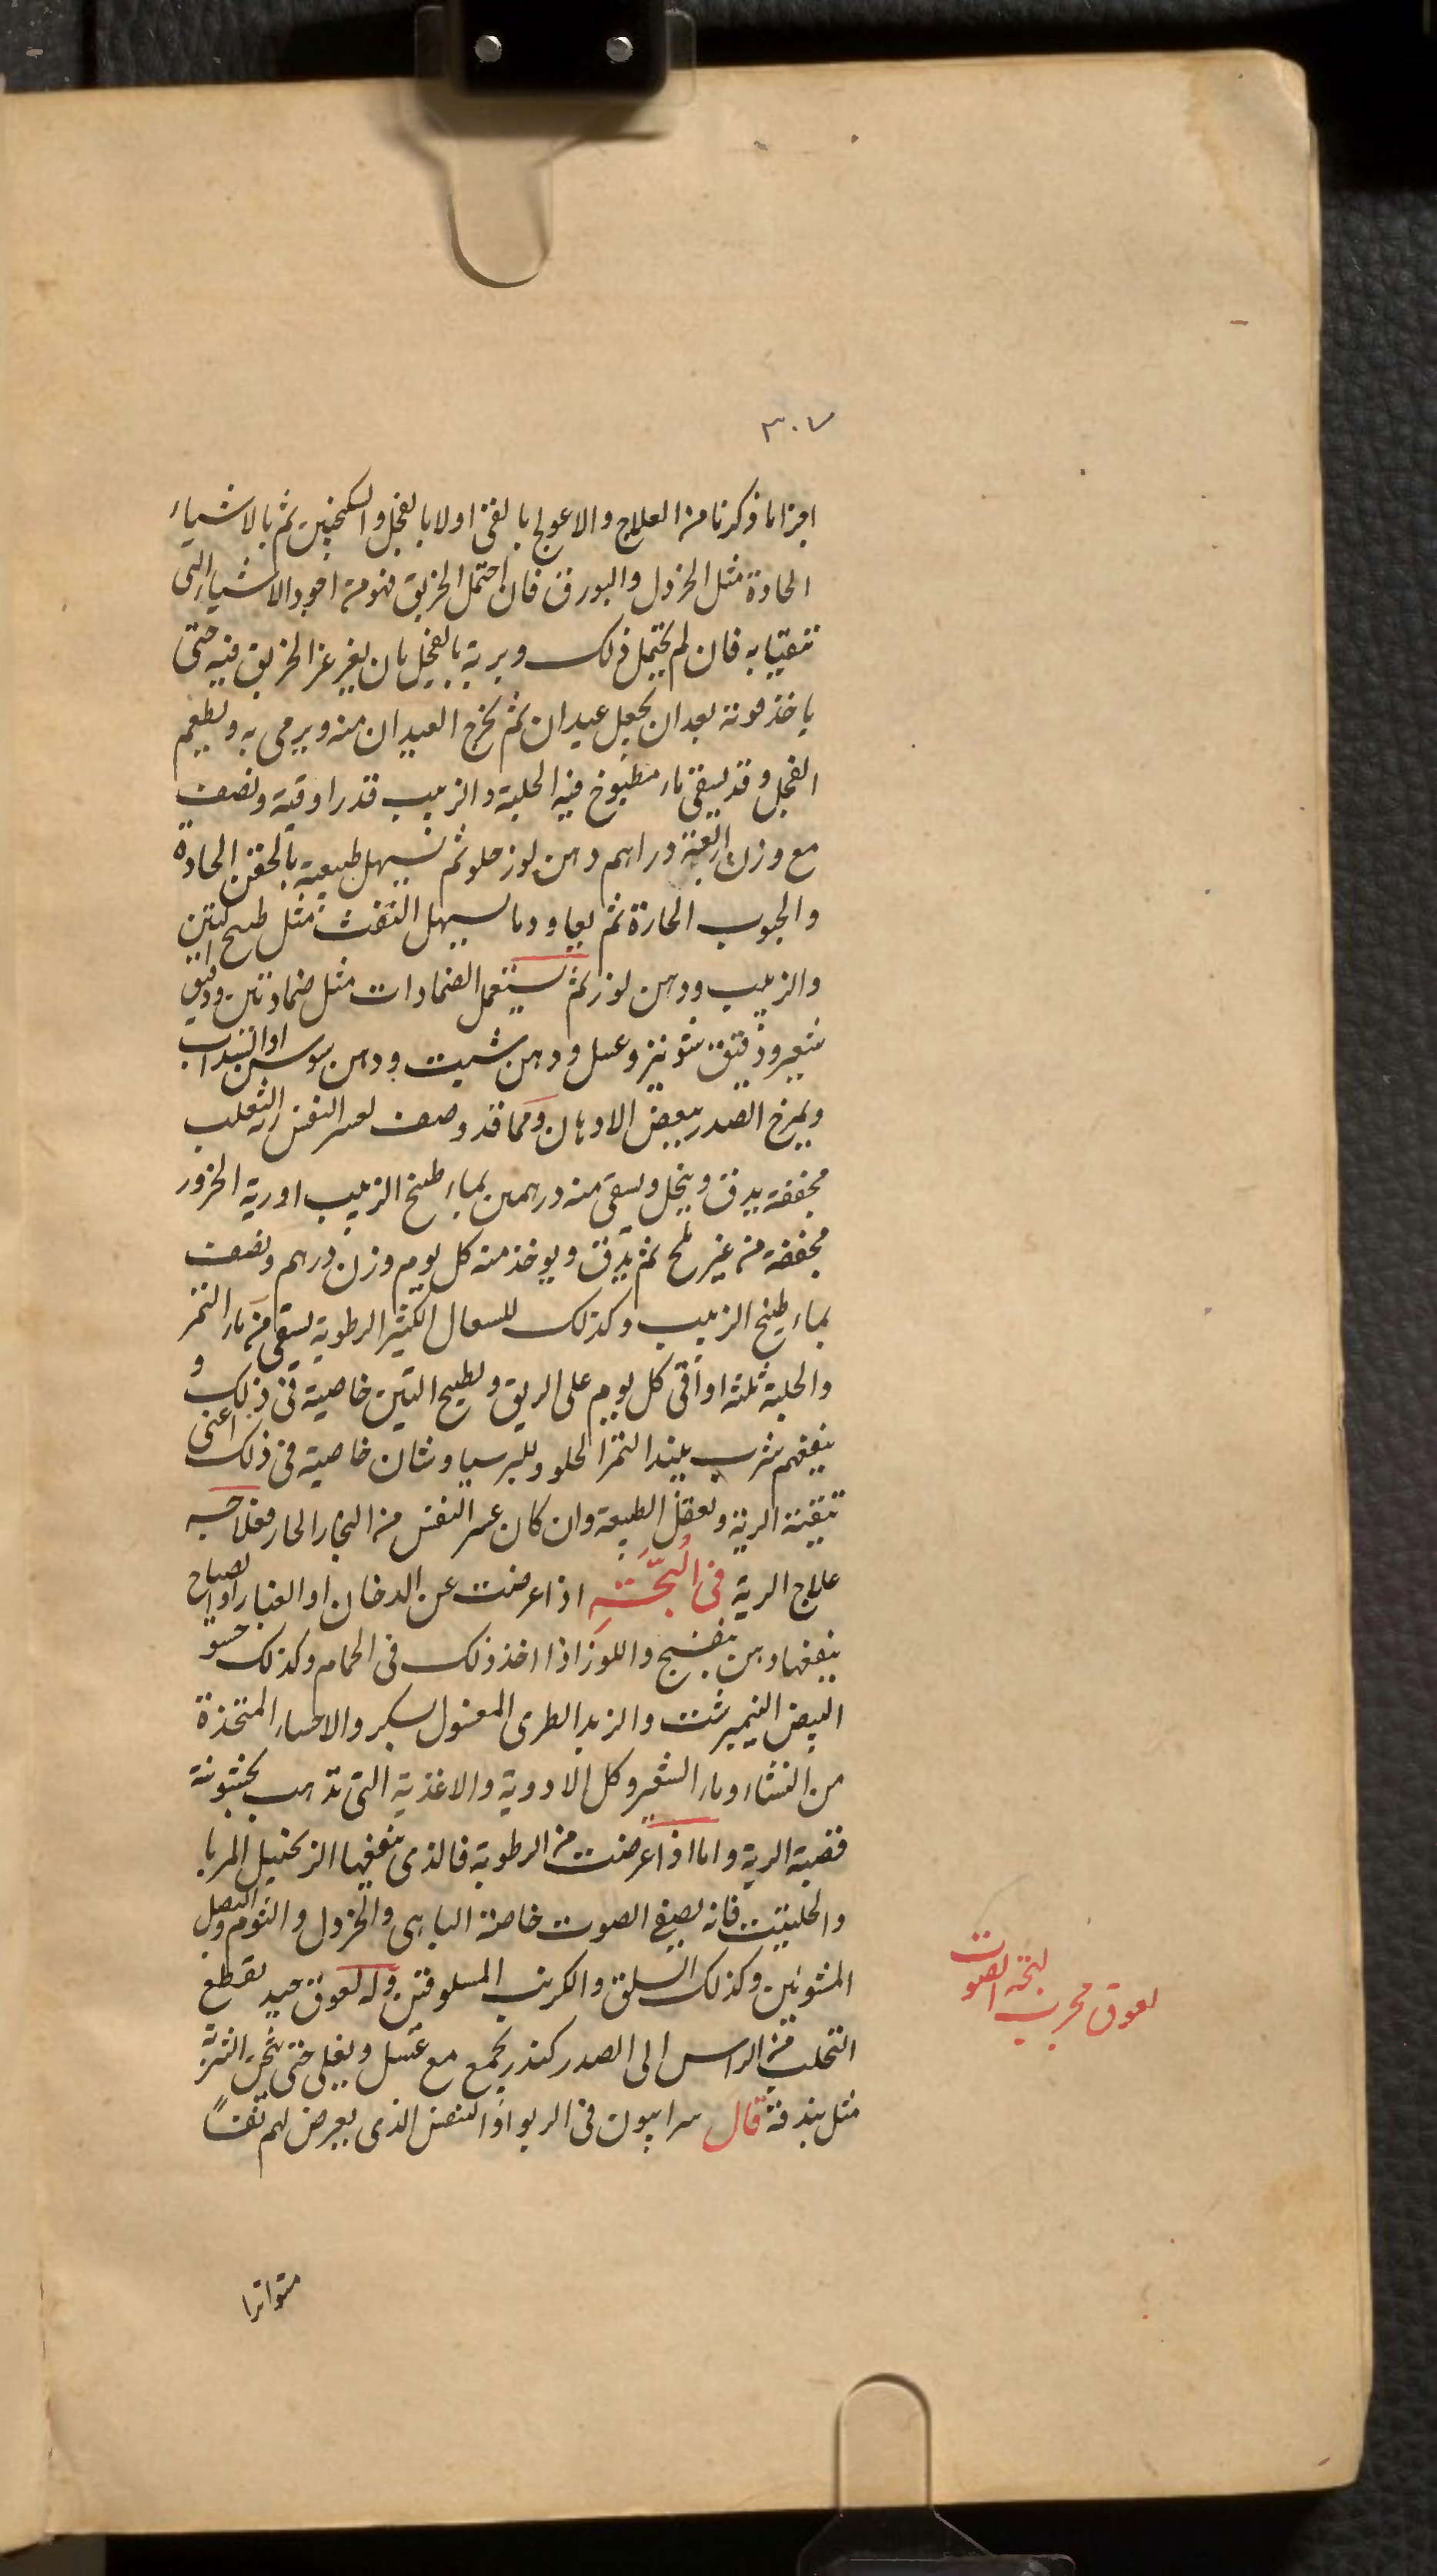 ٣٠٧
اجزا ما ذكرنا من العلاج والا عولجوا بالقئ اولا بالفجل والسكنجبين ثم بالاشياء
الحادة مثل الخردل والبورق فان احتمل الخربق فهو من اجود الاشياء التى
تتقيا به فان لم يحتمل ذلك وبريه بالفجل بان يغرغز الخربق فيه حتى
ياخذ قوته بعد ان يجعل عيدان ثم يخرج العيدان منه ويرمى به ويطعم
الفجل وقد يسقى ماء مطبوخ فيه الحلبة والزبيب قدر اوقية ونصف
مع وزن اربعة دراهم دهن لوز حلو ثم يسهل طبيعته بالحقن الحادة
والحبوب الحارة ثم يعاود ما يسهل النفث مثل طبيخ التين
والزبيب ودهن لوز ثم يستعمل الضمادات مثل ضماد تين ودقيق
شعير ودقيق شونيز وعسل ودهن شبت ودهن سوسن او السداب
ويمرخ الصدر ببعض الادهان ومما قد وصف لعسر النفس رية الثعلب
مجففة يدق وينخل ويسقى منه درهمين بماء طبيخ الزبيب او رية الجزور
مجففة من غير ملح ثم يدق ويوخذ منه كل يوم وزن درهم ونصف
بماء طبيخ الزبيب وكذلك للسعال الكثير الرطوبة يسقى من ماء التمر
والحلبة ثلثه اواقى كل يوم على الريق ولطبيخ التين خاصية فى ذلك و
ينفعهم شرب نبيذ التمر الحلو وللبرسياوشان خاصية فى ذلك اعنى
تنقية الرية ويعقل الطبيعة وان كان عسر النفس من البخار الحار فعلاجه
علاج الرية فى البحّة اذا عرضت عن الدخان او الغبار او الصياح
ينفعها دهن بنفسج واللوز اذا اخذ ذلك فى الحمام وكذلك حسو
البيض النيمبرشت والزبد الطرى المغسول بسكر والاحساء المتخذة
من النشاء وماء الشعير وكل الادوية والاغذية التى تذهب بخشونة
قصبة الرية واما اذا عرضت من الرطوبة فالذى ينفعها الزنجبيل المربا
والحلتيت فانه يصفى الصوت خاصة البابى والخردل والثوم والبصل
المشويين وكذلك السلق والكرنب المسلوقتين وله لعوق جيد يقطع
التحلب من الراس الى الصدر كندر يجمع مع عسل ويغلى حتى يثخن الشربة
مثل بندقة قال سرابيون فى الربو او النفس الذى يعرض لهم نفسًا
لعوق مجرب لبحة الصوت
متواترا